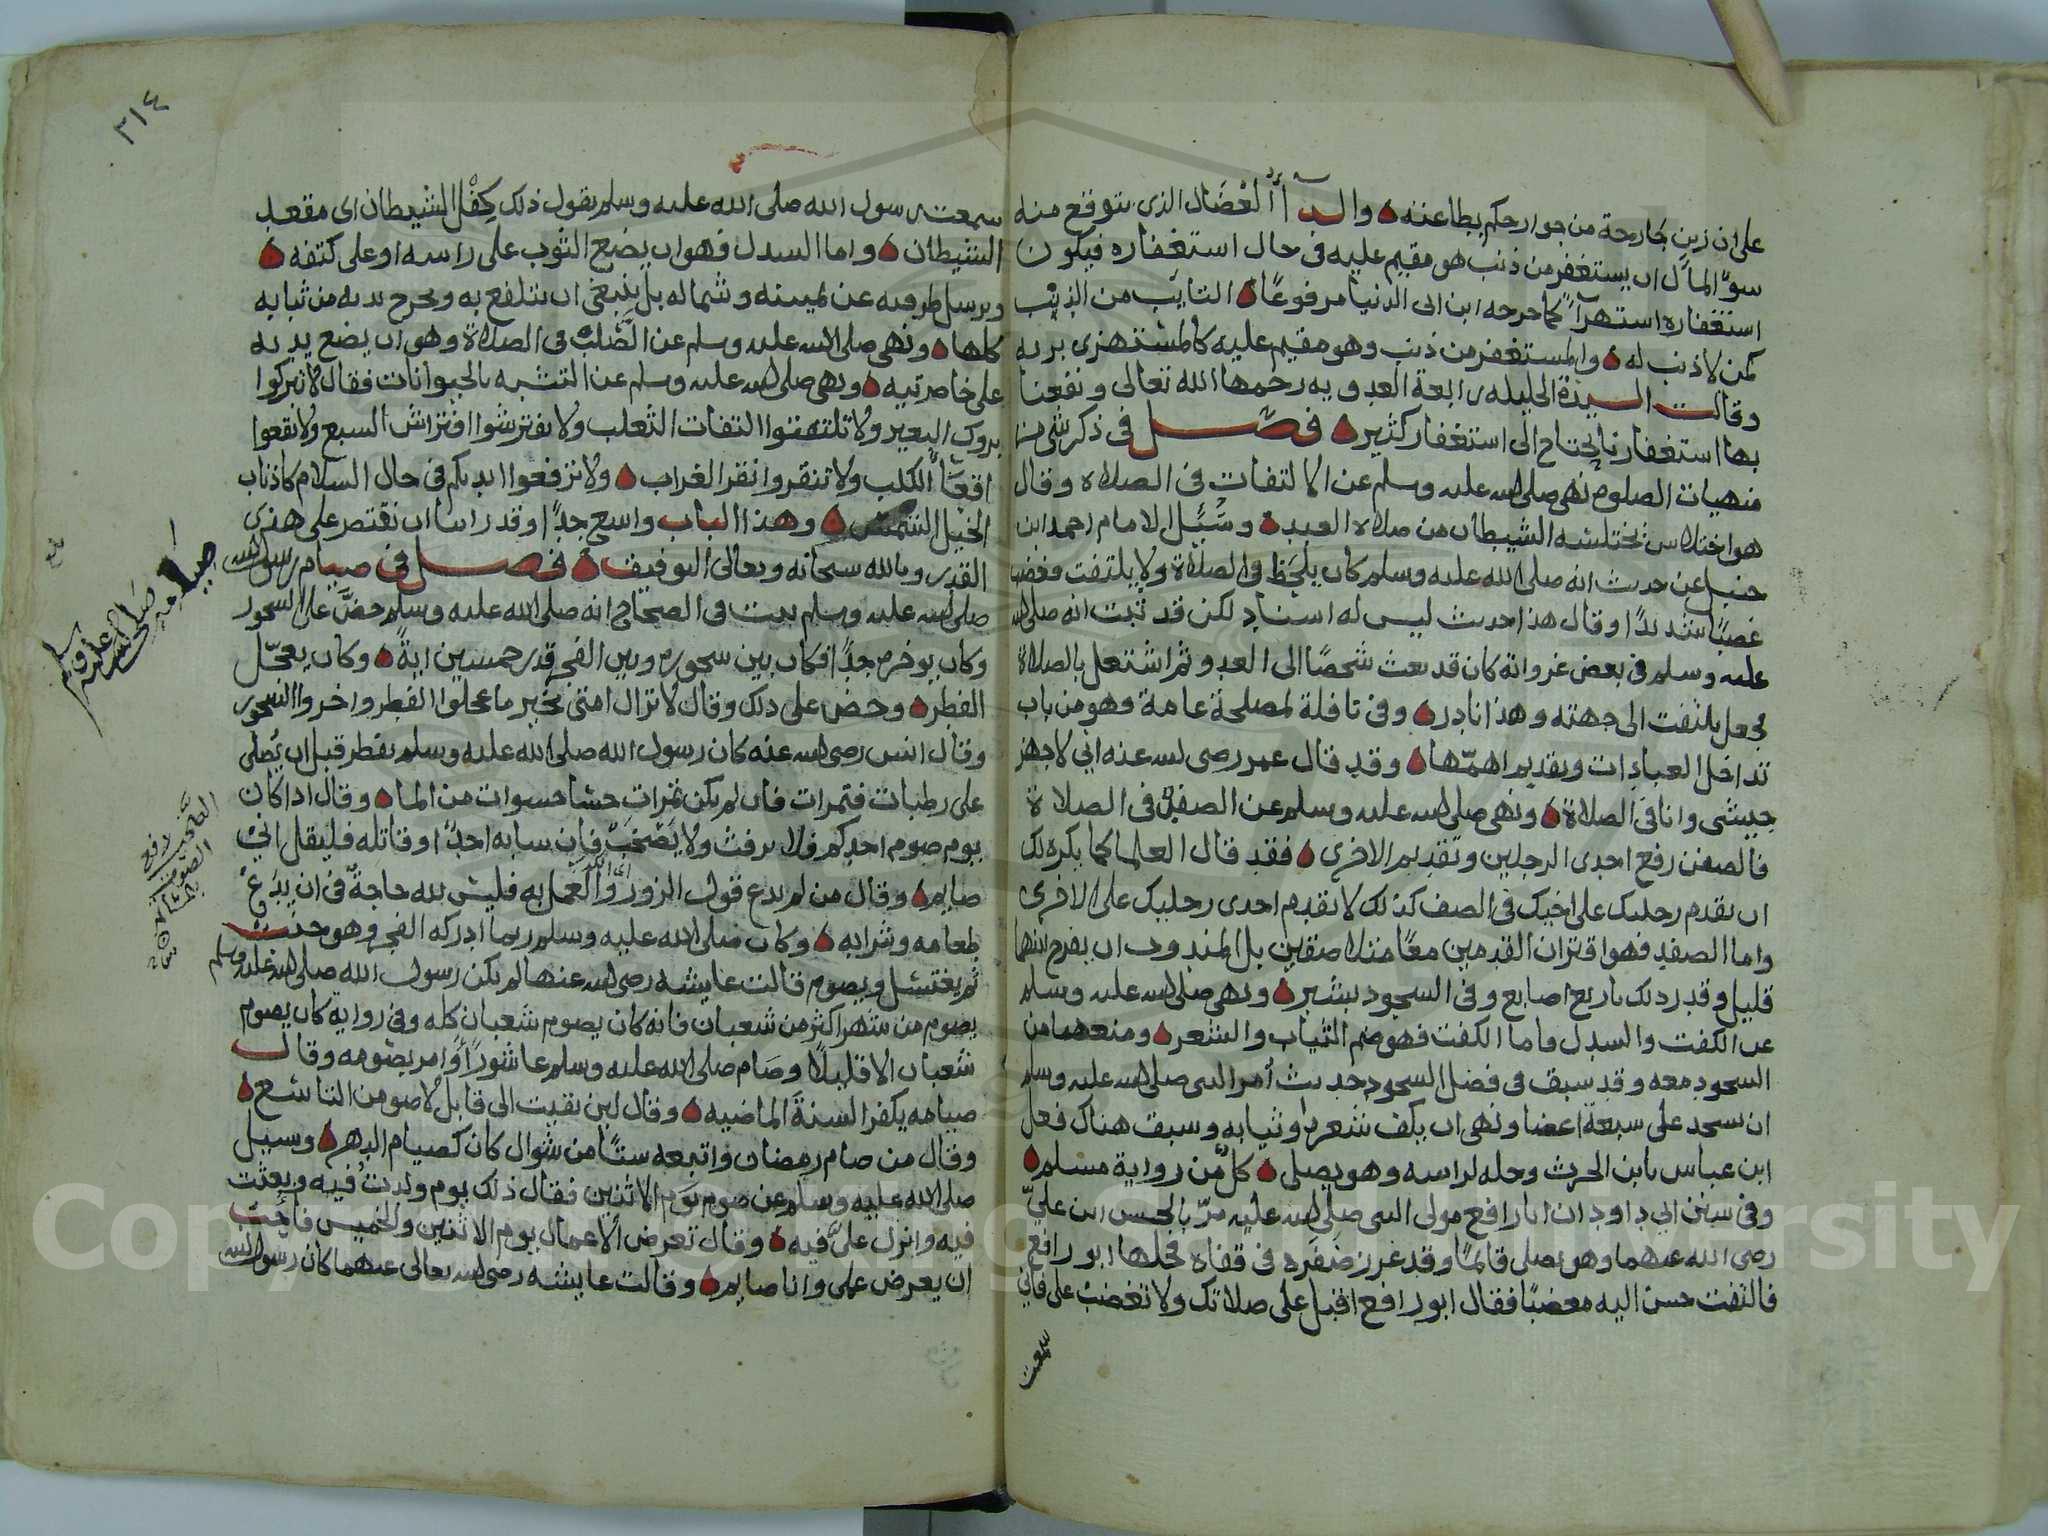 على ان زين كل جارحة من جوارحكم بطاعته والدآء العضال الذى يتوقع منه
سوء المآل ان يستغفر من ذنب هو مقيم عليه فى حال استغفاره فيكون
استغفاره استهزآء كما خرجه ابن ابى الدنيا مرفوعًا التايب من الذنب
كمن لا ذنب له والمستغفر من ذنب وهو مقيم عليه كالمستهزى بربه
وقالت السيدة الجليله رابعة العدويه رحمها الله تعالى ونفعنا
بها استغفارنا يحتاج الى استغفار كثير فصل فى ذكر شى من
منهيات الصلوه نهى صلى الله عليه وسلم عن الالتفات فى الصلاه وقال
هو اختلاس يختلسه الشيطان من صلاه العبد وسُيل الامام احمد ابن
حنبل عن حديث انه صلى الله عليه وسلم كان يلحظ فى الصلاة ولا يلتفت فغضب
غضبًا شديدًا وقال هذا حديث ليس له اسناد لكن قد ثبت انه صلى الله
عليه وسلم فى بعض غزواته كان قد بعث شخصًا الى العدو ثم اشتغل بالصلاة
فجعل يلتفت الى جهته وهذا نادر وفى نافلة لمصلحة عامة وهو من باب
تداخل العبادات وتقديم اهمّها وقد قال عمر رضى الله عنه انى لاجهز
جيشى وانا فى الصلاة ونهى صلى الله عليه وسلم عن الصفن فى الصلاة
فالصفن رفع احدى الرجلين وتقديم الاخرى فقد قال العلما كما يكره لك
ان تقدم رجليك على اخيك فى الصف كذلك لا تقدم احدى رجليك على الاخرى
واما الصفد فهو اقتران القدمين معًا متلاصقين بل المندوب ان يفرج بينهما
قليل وقدر ذلك باربع اصابع وفى السجود بشبر ونهى صلى الله عليه وسلم
عن الكفت والسدل فاما الكفت فهو ضم الثياب والشعر ومنعهما من
السجود معه وقد سبق فى فضل السجود حديث أمر النبى صلى الله عليه وسلم
ان يسجد على سبعة اعضا ونهى ان يكف شعره او ثيابه وسبق هناك فعل
ابن عباس بابن الحرث وحله لراسه وهو يصلى كلٌ من رواية مسلم
وفى سنن ابى داود ان ابا رافع مولى النبى صلى الله عليه مرّ بالحسن ابن علىّ
رضى الله عنهما وهو يصلى قائمًا وقد غرز ضفره فى قفاه فحلها ابو رافع
فالتفت حسن اليه مغضبًا فقال ابو رافع اقبل على صلاتك ولا تغضب على فانى
سمعت
٣١٤
سمعت رسول الله صلى الله عليه وسلم يقول ذلك كِفْل الشيطان اى مقعد
الشيطان واما السدل فهو ان يضع الثوب على راسه او على كتفه
ويرسل طرفيه عن يمينه وشماله بل ينبغى ان يتلفع به ويخرج يديه من ثيابه
كلها ونهى صلى الله عليه وسلم عن الصَّلْب فى الصلاة وهو ان يضع يديه
على خاصرتيه ونهى صلى الله عليه وسلم عن التشبه بالحيوانات فقال لا تبركوا
بروك البعير ولا تلتفتوا التفات الثعلب ولا تفترشوا افتراش السبع ولا تقعوا
اقعآء الكلب ولا تنقروا نقر الغراب ولا ترفعوا ايديكم فى حال السلام كاذناب
الخيل الشمس وهذا الباب واسع جدًا وقد راينا ان نقتصر على هذى
القدر وبالله سبحانه وتعالى التوفيق فصل فى صيام رسول الله
صلى الله عليه وسلم ثبت فى الصحاح انه صلى الله عليه وسلم حضّ على السحور
وكان يوخره جدًا فكان بين سحوره وبين الفجر قدر خمسين ايةً وكان يعجّل
الفطر وحض على ذلك وقال لا تزال امتى بخير ما عجلوا الفطر واخروا السحور
وقال انس رضى الله عنه كان رسول الله صلى الله عليه وسلم يفطر قبل ان يُصلى
على رطبات فتمرات فان لم يكن تمرات حسا حسوات من الما وقال اذا كان
يوم صوم احدكم فلا يرفث ولا يَصْخَبْ فان سابه احدٌ او قاتله فليقل انى
صايم وقال من لم يدع قول الزور والعمل به فليس لله حاجةٌ فى ان يدَعَ
طعامه وشرابه وكان صلى الله عليه وسلم ربما ادركه الفجر وهو جنب
ثم يغتسل ويصوم قالت عايشه رضى الله عنها لم يكن رسول الله صلى الله عليه وسلم
يصوم من شهر اكثر من شعبان فانه كان يصوم شعبان كله وفى رواية كان يصوم
شعبان الا قليلًا وصام صلى الله عليه وسلم عاشورآء وامر بصومه وقال
صيامه يكفر السنة الماضيه وقال لين بقيت الى قابل لاصومن التاسع
وقال من صام رمضان واتبعه ستًا من شوال كان كصيام الدهر وسيل
صلى الله عليه وسلم عن صوم يوم الاثنين فقال ذلك يوم ولدتُ فيه وبعثت
فيه وانزل علىّ فيه وقال تعرض الاعمال يوم الاثنين والخميس فاحب
ان يعرض عملى وانا صايم وقالت عايشه رضى الله تعالى عنهما كان رسول الله
صيامه
صلى الله عليه وسلم